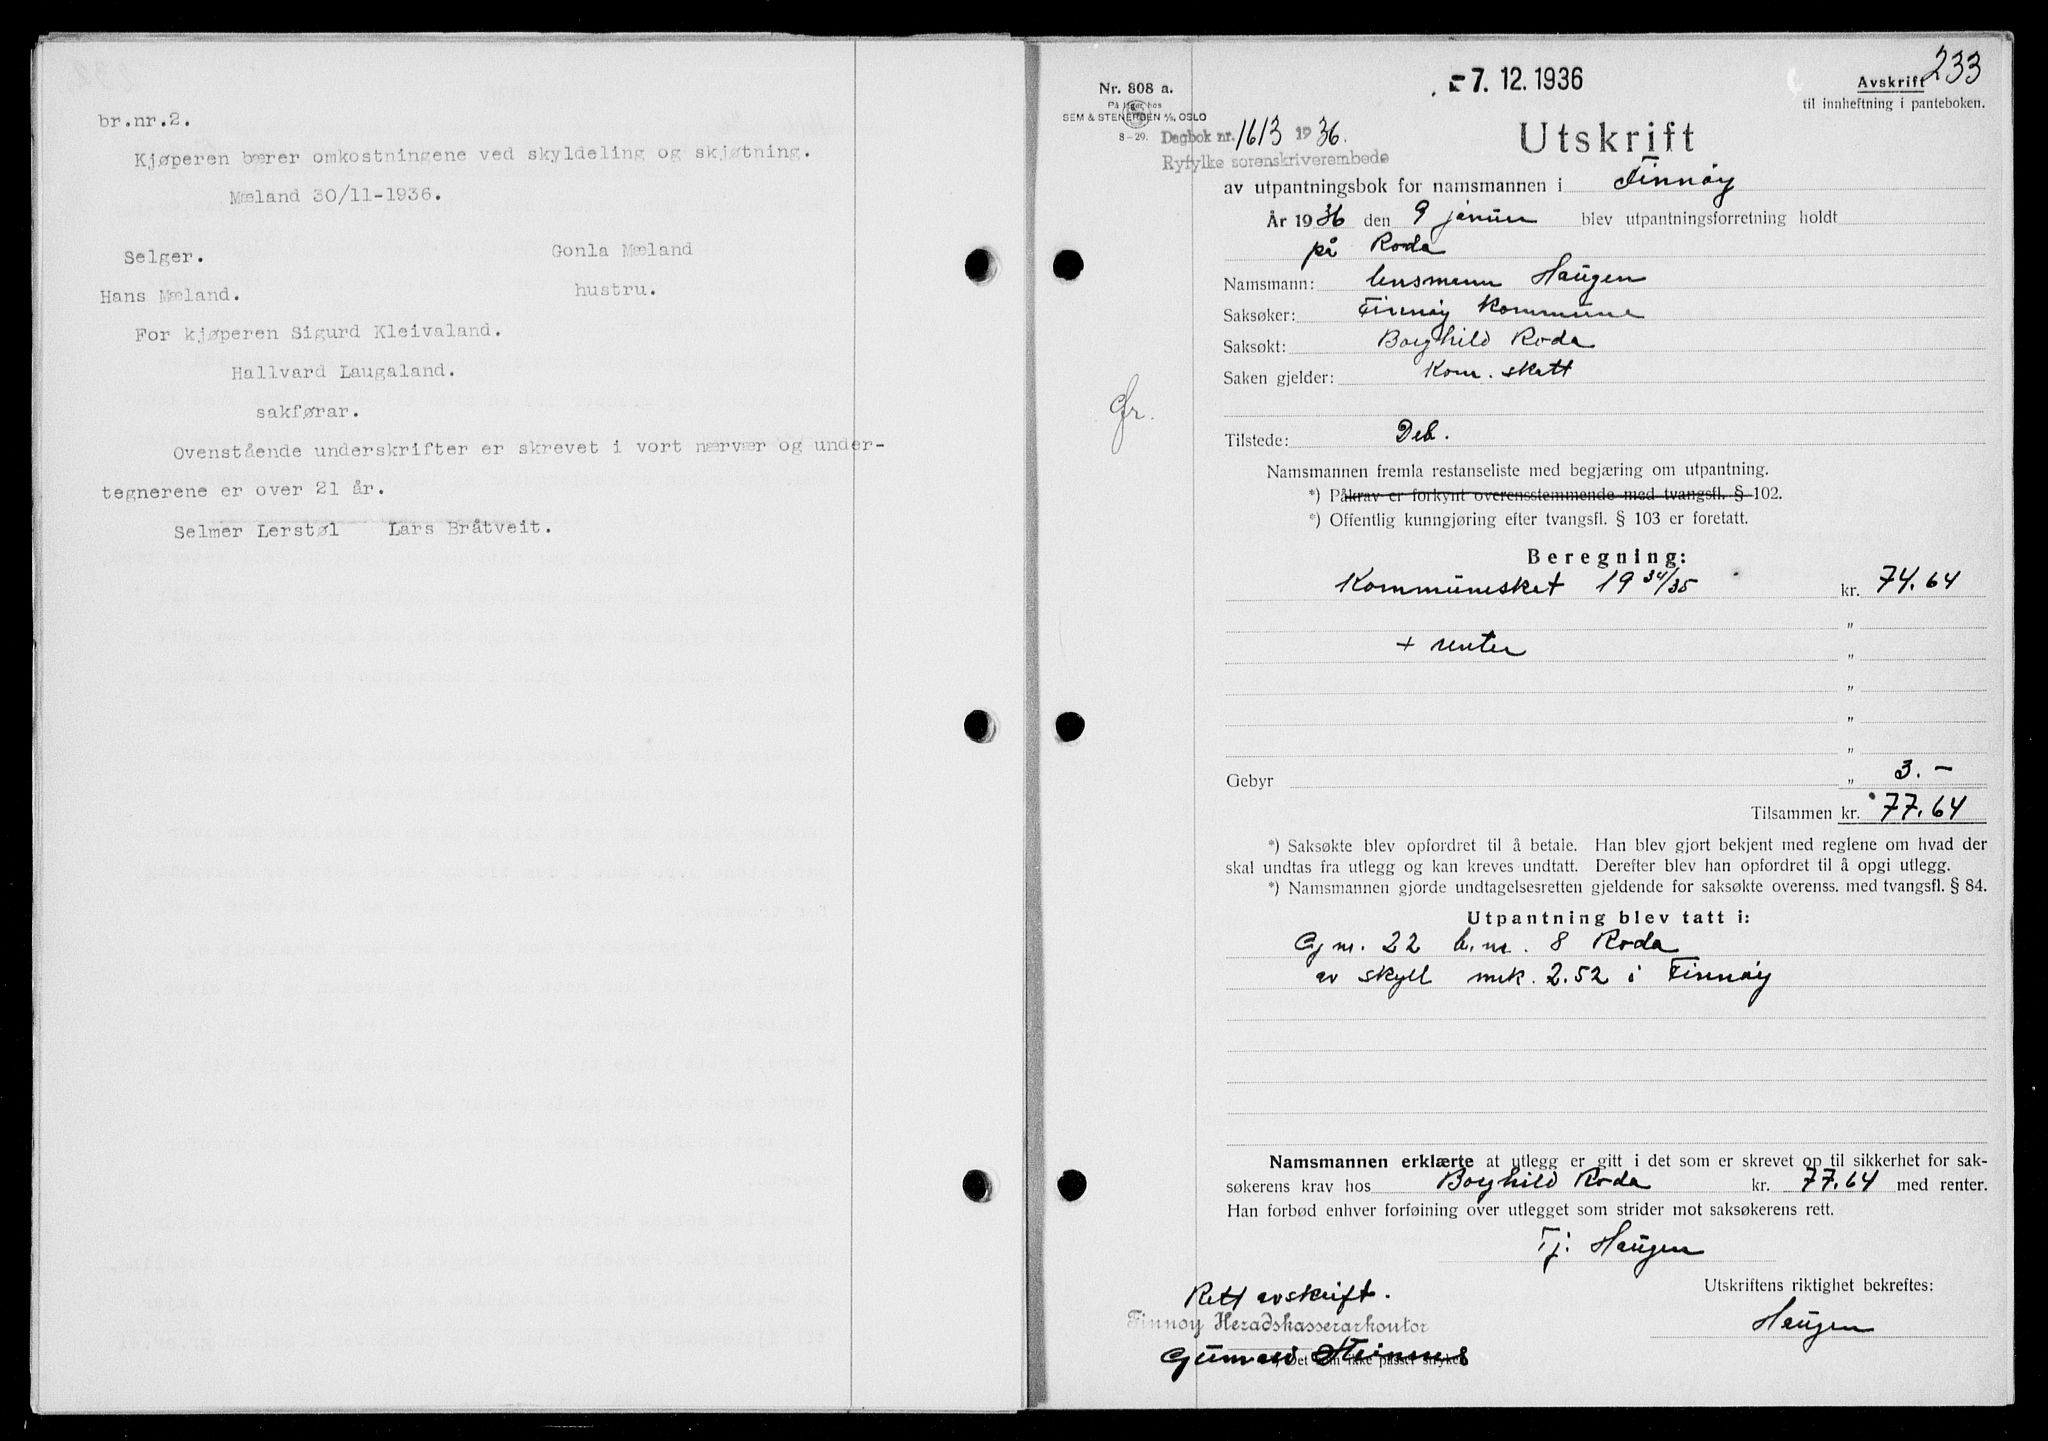 br.nr.2.
Kjøperen bærer omkostningene ved skyldeling og skjøtning.
Mæland 30/11-1936.
Selger.
Gonla Mæland
Hans Mæland.
hustru.
For kjøperen Sigurd Kleivaland.
Hallvard Laugaland.
sakførar.
Ovenstående underskrifter er skrevet i vort nærvær og under-
tegnerene er over 21 år.
Selmer Lerstøl Lars Bråtveit.
233
Nr. 808 a.
På lager hos
SEM & STENERSEN A/S, OSLO
8-29.
-7. 12. 1936
Avskrift
til innheftning i panteboken.
Dagbok nr. 1613 1936.
Ryfylke sorenskriverembede
Utskrift
av utpantningsbok for namsmannen i Finnøy
År 1936 den 9 januar blev utpantningsforretning holdt
på Roda
Namsmann: lensmann Haugen
Saksøker: Finnøy Kommune
Saksøkt: Borghild Roda
Saken gjelder: Kom. skatt
Gr.
Tilstede: Deb.
Namsmannen fremla restanseliste med begjæring om utpantning.
*) Påkrav er forkynt overensstemmende med tvangsfl. § 102.
*) Offentlig kunngjøring efter tvangsfl. § 103 er foretatt.
Beregning:
Kommuneskat 19 34/35 kr. 74.64
"
+ renter "
"
"
"
Gebyr " 3.-
Tilsammen kr. 77.64
*) Saksøkte blev opfordret til å betale. Han blev gjort bekjent med reglene om hvad der
skal undtas fra utlegg og kan kreves undtatt. Derefter blev han opfordret til å opgi utlegg.
*) Namsmannen gjorde undtagelsesretten gjeldende for saksøkte overenss. med tvangsfl. § 84.
Utpantning blev tatt i:
G.nr. 22 b.nr. 8 Roda
av skyll mrk. 2.52 i Finnøy
Namsmannen erklærte at utlegg er gitt i det som er skrevet op til sikkerhet for sak-
søkerens krav hos Borghild Roda kr. 77.64 med renter.
Han forbød enhver forføining over utlegget som strider mot saksøkerens rett.
Tj. Haugen
Utskriftens riktighet bekreftes:
Rett avskrift.
Finnøy Heradskasserarkontor
Haugen
*) Det som ikke passer strykes